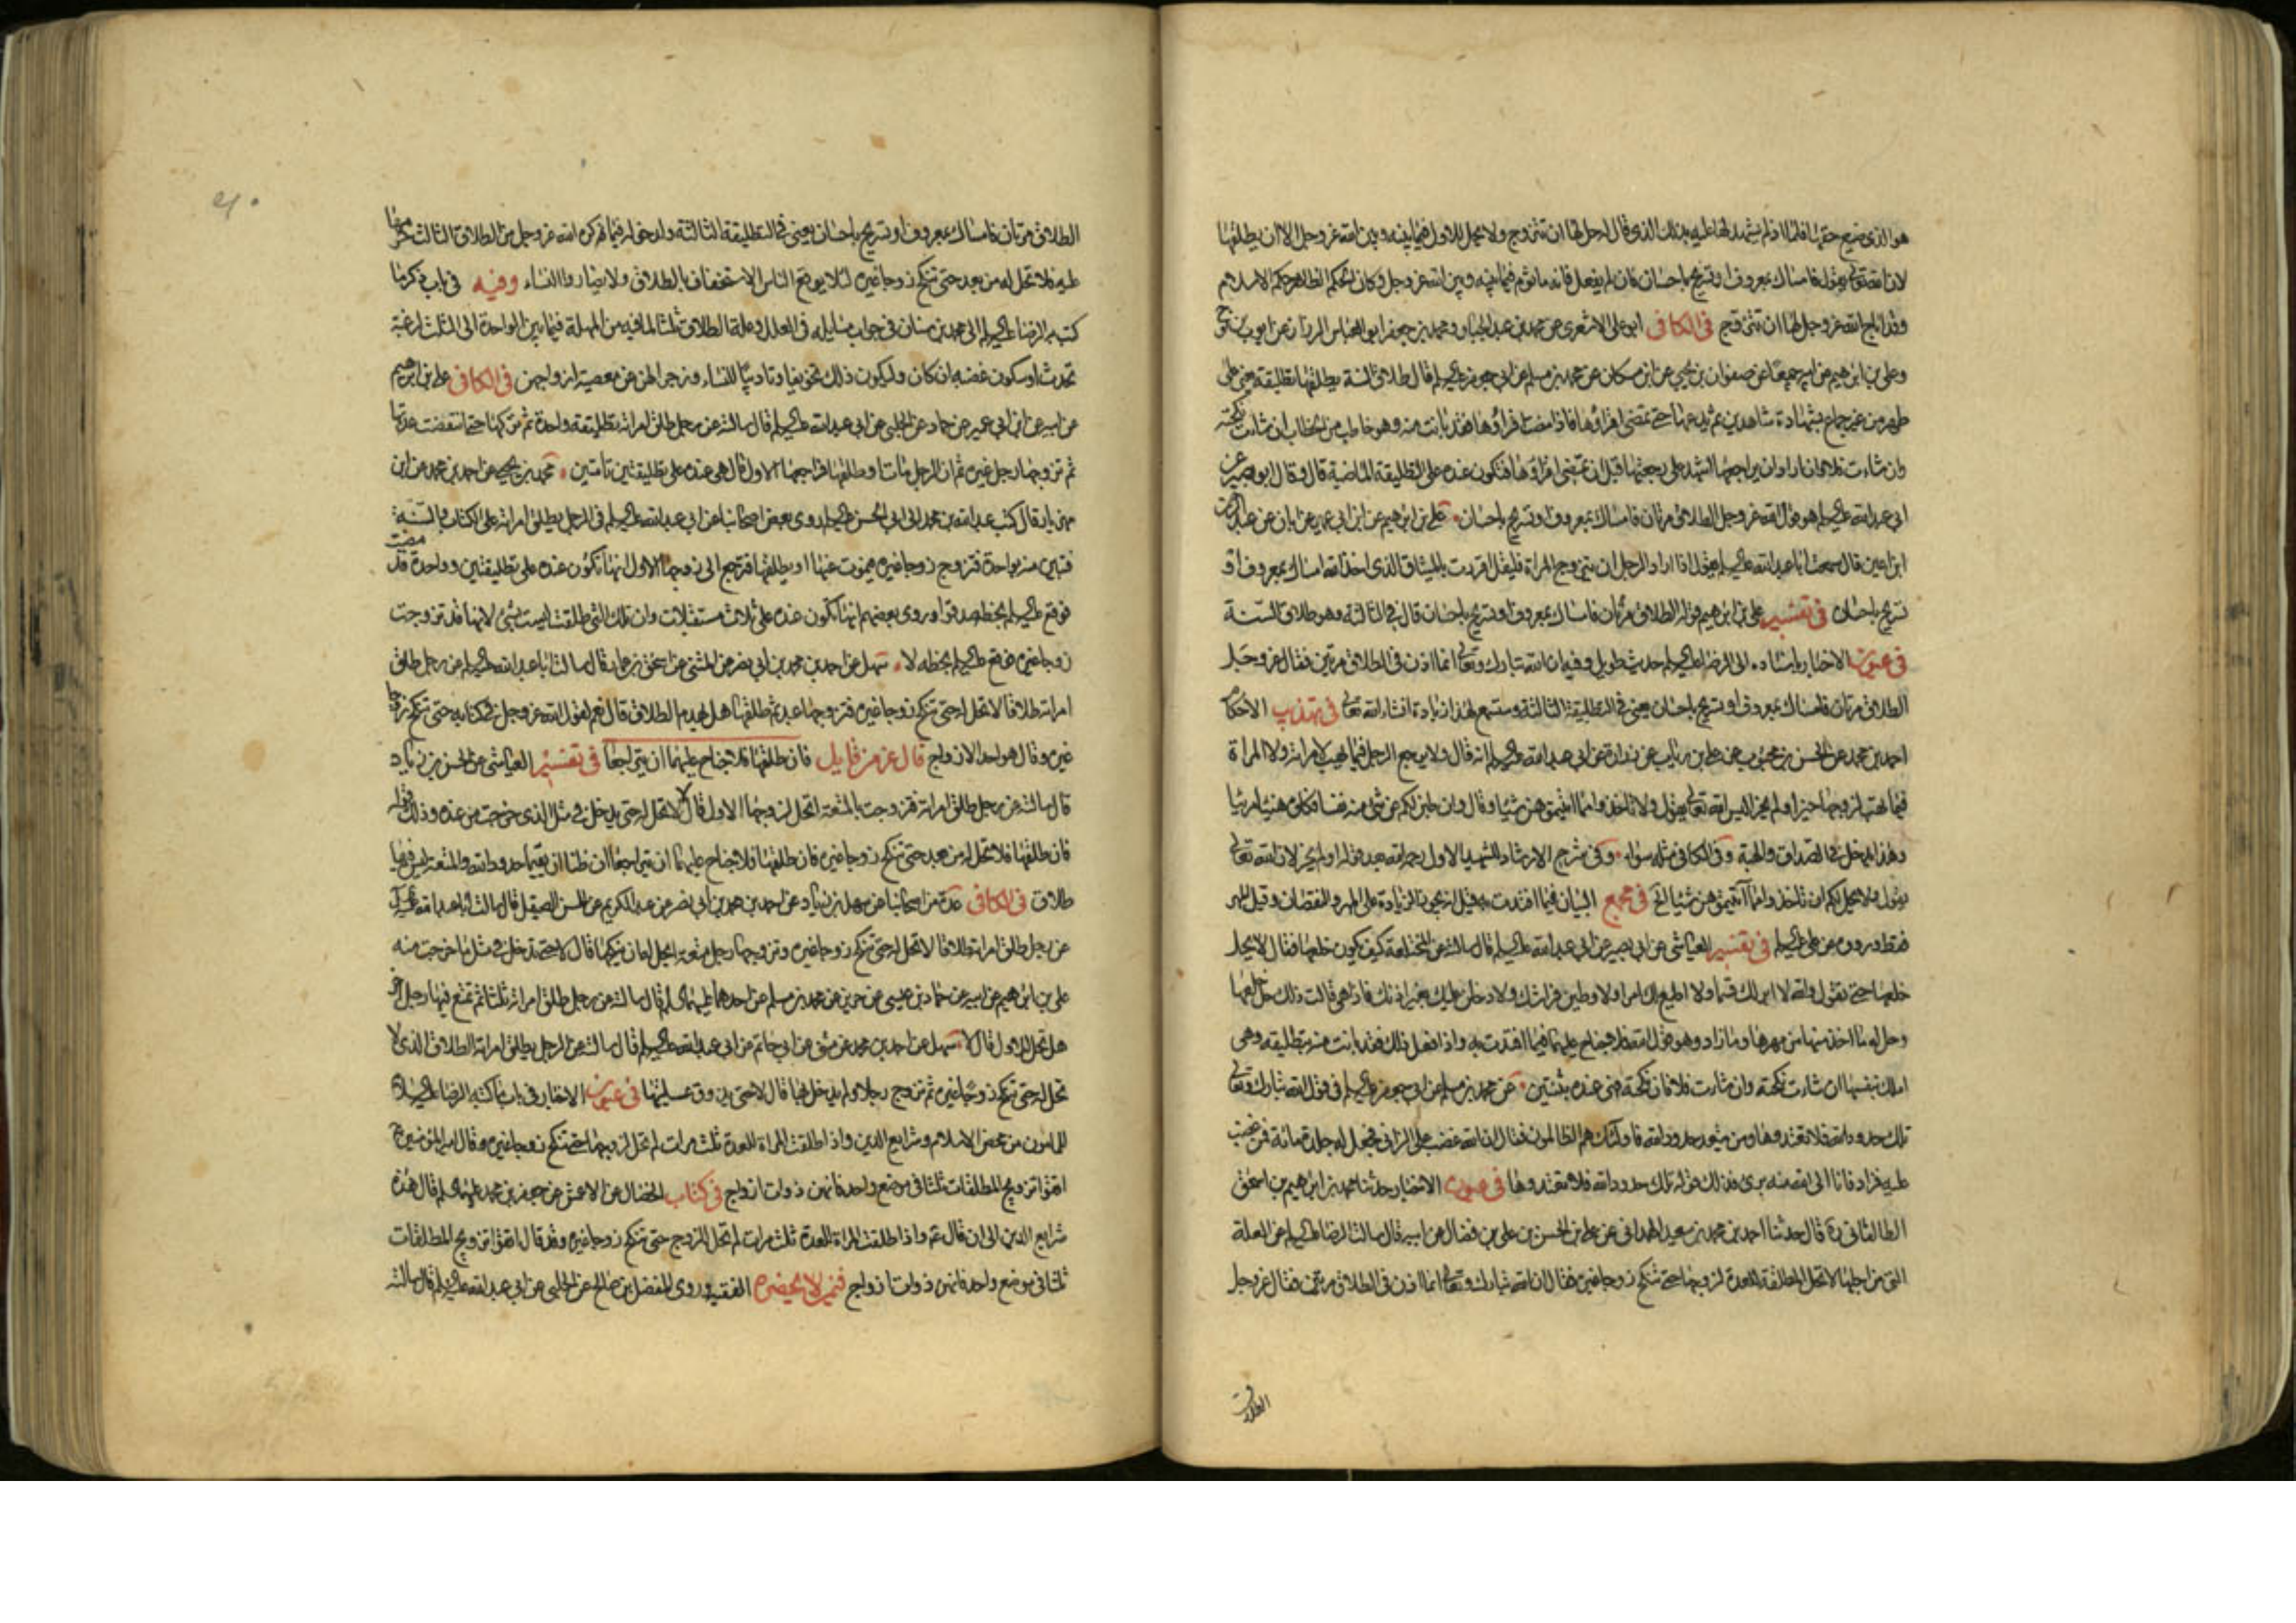 هو الذى ضيع حقها فلما اذ لم يشهد لها عليه بذلك الذى قال لها حل لها ان تتزوج ولا يحل للاول فيما بينه وبين الله عز وجل الا ان يطلقها
لان الله تعالى يقول فامساك بمعروف او تسريح باحسان فان لم يفعل فانه ماثوم فيما بينه وبين الله عز وجل وكان الحكم الظاهر حكم الاسلام
وقد اباح الله عز وجل لها ان تتزوج فى الكافى ابو على الاشعرى عن محمد بن عبد الجبار ومحمد بن جعفر ابو العباس الرزاز عن ايوب بن نوح
وعلى بن ابرهيم عن ابيه جميعا عن صفوان بن يحيى عن ابن مسكان عن محمد بن مسلم عن ابى جعفر عليه السلم قال طلاق السنة يطلقها تطليقة يعنى على
طهر من غير جماع بشهادة شاهدين ثم يدعها حتى تمضى اقراؤها فاذا مضت اقراؤها فقد بانت منه وهو خاطب من الخطاب ان شاءت نكحته
وان شاءت فلا وان اراد ان يراجعها اشهد على رجعتها قبل ان تمضى اقراؤها فتكون عنده على التطليقة الماضية قال وقال ابو بصير عن
ابى عبد الله عليه السلم هو قول الله عز وجل الطلاق مرتان فامساك بمعروف او تسريح باحسان على بن ابرهيم عن ابن ابى عمير عن ابان عن عبد الرحمن
ابن اعين قال سمعت ابا عبد الله عليه السلم يقول اذا اراد الرجل ان يتزوج المراة فليقل اقررت بالميثاق الذى اخذ الله امساك بمعروف او
تسريح باحسان فى تفسير على بن ابرهيم قوله الطلاق مرتان فامساك بمعروف او تسريح باحسان قال فى الثالثة وهو طلاق السنة
فى عيون الاخبار باسناده الى الرضا عليه السلم حديث طويل وفيه ان الله تبارك وتعالى انما اذن فى الطلاق مرتين فقال عز وجل
الطلاق مرتان فامساك بمعروف او تسريح باحسان يعنى فى التطليقة الثالثة وستسمع لهذا زيادة انشاء الله تعالى فى تهذيب الاحكام
احمد بن محمد عن الحسن بن محبوب عن على بن رئاب عن زرارة عن ابى عبد الله عليه السلم انه قال ولا يرجع الرجل فيما يهب لامراته ولا المراة
فيما تهب لزوجها حيز او لم يحز اليس الله تعالى يقول ولا تاخذوا مما اتيتموهن شيئا وقال وان طبن لكم عن شئ منه نفسا فكلوه هنيئا مريئا
وهذا يدخل فى الصداق والهبة وفى الكافى مثله سواء وفى شرح الارشاد للشهيد الاول رحمه الله بعد قوله او لم يحز لان الله تعالى
يقول ولا يحل لكم ان تاخذوا مما اتيتموهن شيئا الخ فى مجمع البيان فيما افتدت به قيل انه يجوز الزيادة على المهر والنقصان وقيل المهر
فقط ورووه عن على عليه السلم فى تفسير العياشى عن ابى بصير عن ابى عبد الله عليه السلم قال سالته عن المختلعة كيف يكون خلعها فقال لا يحل
خلعها حتى تقول والله لا ابر لك قسما ولا اطيع لك امرا ولاوطين فراشك ولادخلن عليك بغير اذنك فاذا هى قالت ذلك حل خلعها
وحل له ما اخذ منها من مهرها وما زاد وهو قول الله فلا جناح عليهما فيما افتدت به واذا فعل ذلك فقد بانت منه بتطليقة وهى
املك بنفسها ان شاءت نكحته وان شاءت فلا فان نكحته فهى عنده بثنتين عن محمد بن مسلم عن ابى جعفر عليه السلم فى قول الله تبارك وتعالى
تلك حدود الله فلا تعتدوها ومن يتعد حدود الله فاولئك هم الظالمون فقال ان الله غضب على الزانى فجعل له جلدة مائة فمن غضب
عليه فزاد فانا الى الله منه برئ فذلك قوله تلك حدود الله فلا تعتدوها فى عيون الاخبار حدثنا محمد بن ابرهيم بن اسحق
الطالقانى ره قال حدثنا احمد بن محمد بن سعيد الهمدانى عن على بن الحسن بن على بن فضال عن ابيه قال سالت الرضا عليه السلم عن العلة
التى من اجلها لا تحل المطلقة للعدة لزوجها حتى تنكح زوجا غيره فقال ان الله تبارك وتعالى انما اذن فى الطلاق مرتين فقال عز وجل
الطلاق
الطلاق مرتان فامساك بمعروف او تسريح باحسان يعنى فى التطليقة الثالثة ولدخوله فيما كره الله عز وجل من الطلاق الثالث حرمها
عليه فلا تحل له من بعد حتى تنكح زوجا غيره لئلا يوقع الناس الاستخفاف بالطلاق ولا يضاروا النساء وفيه فى باب ذكر ما
كتب به الرضا عليه السلم الى محمد بن سنان فى جواب مسايله فى العلل وعلة الطلاق ثلثا لما فيه من المهلة فيما بين الواحدة الى الثلث لرغبة
تحدث او سكون غضبه ان كان وليكون ذلك تخويفا وتاديبا للنساء وزجرا لهن عن معصية ازواجهن فى الكافى على بن ابرهيم
عن ابيه عن ابن ابى عمير عن حماد عن الحلبى عن ابى عبد الله عليه السلم قال سالته عن رجل طلق امراته تطليقة واحدة ثم تركها حتى انقضت عدتها
ثم تزوجها رجل غيره ثم ان الرجل مات او طلقها فراجعها الاول قال هى عنده على تطليقتين تامتين محمد بن يحيى عن احمد بن محمد عن ابن
مهزيار قال كتب عبد الله بن محمد الى ابى الحسن عليه السلم روى بعض اصحابنا عن ابى عبد الله عليه السلم فى الرجل يطلق امراته على الكتاب والسنة
فتبين منه بواحدة فتزوج زوجا غيره فيموت عنها او يطلقها فترجع الى زوجها الاول انها تكون عنده على تطليقتين وواحدة قد مضت
فوقع عليه السلم بخطه صدقوا وروى بعضهم انها تكون عنده على ثلاث مستقبلات وان تلك التى طلقت ليست بشئ لانها قد تزوجت
زوجا غيره فوقع عليه السلم بخطه لا سهل عن احمد بن محمد بن ابى نصر عن المثنى عن اسحق بن عمار قال سالت ابا عبد الله عليه السلم عن رجل طلق
امراته طلاقا لا تحل له حتى تنكح زوجا غيره فتزوجها عبد ثم طلقها هل يهدم الطلاق قال نعم لقول الله عز وجل فى كتابه حتى تنكح زوجا
غيره وقال هو احد الازواج قال عز من قايل فان طلقها فلا جناح عليهما ان يتراجعا فى تفسير العياشى عن الحسن بن زياد
قال سالته عن رجل طلق امراته فتزوجت بالمتعة اتحل لزوجها الاول قال لا لا تحل له حتى يدخل فى مثل الذى خرجت من عنده وذلك قوله
فان طلقها فلا تحل له من بعد حتى تنكح زوجا غيره فان طلقها فلا جناح عليهما ان يتراجعا ان ظنا ان يقيما حدود الله والمتعة ليس فيها
طلاق فى الكافى عدة من اصحابنا عن سهل بن زياد عن احمد بن محمد بن ابى نصر عن عبد الكريم عن الحسن الصيقل قال سالت ابا عبد الله عليه السلم
عن رجل طلق امراته طلاقا لا تحل له حتى تنكح زوجا غيره وتزوجها رجل متعة ايحل له ان ينكحها قال لا حتى تدخل فى مثل ما خرجت منه
على بن ابرهيم عن ابيه عن حماد بن عيسى عن حريز عن محمد بن مسلم عن احدهما عليهما السلم قال سالته عن رجل طلق امراته ثلثا ثم تمتع فيها رجل اخر
هل تحل للاول قال لا سهل عن احمد بن محمد عن مثنى عن ابى حاتم عن ابى عبد الله عليه السلم قال سالته عن الرجل يطلق امراته الطلاق الذى لا
تحل له حتى تنكح زوجا غيره ثم تزوج رجلا ولم يدخل بها قال لا حتى يذوق عسيلتها فى عيون الاخبار فى باب ما كتبه الرضا عليه السلم
للمامون من محض الاسلام وشرايع الدين واذا طلقت المراة للعدة ثلث مرات لم تحل لزوجها حتى تنكح زوجا غيره وقال امير المؤمنين ع
اتقوا تزويج المطلقات ثلثا فى موضع واحد فانهن ذوات ازواج فى كتاب الخصال عن الاعمش عن جعفر بن محمد عليهما السلم قال هذه
شرايع الدين الى ان قال ع واذا طلقت المراة للعدة ثلث مرات لم تحل للزوج حتى تنكح زوجا غيره وقد قال اتقوا تزويج المطلقات
ثلثا فى موضع واحد فانهن ذوات ازواج فيمن لا يحضره الفقيه وروى المفضل بن صالح عن الحلبى عن ابى عبد الله عليه السلم قال سالته